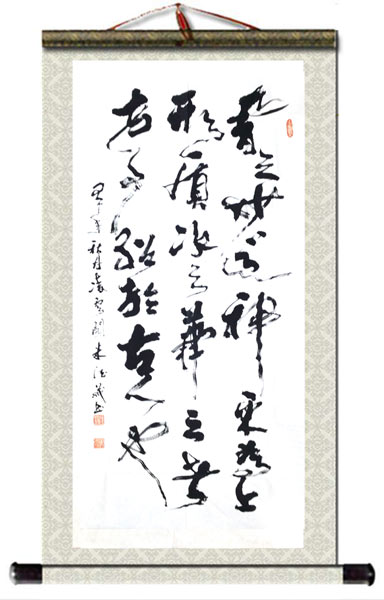 書之妙道神采為上
形質次之兼之者
方可紹於古人也
年秋月凌雲閣朱書